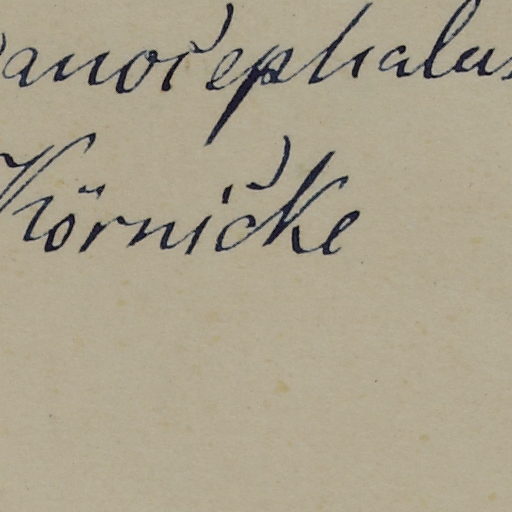 anocephalus
Körnicke